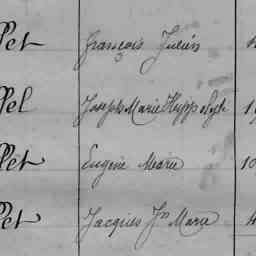 let François Julien
lel Joseph Marie Hyppolyte 1
let Eugène Marie 10
let Jacques Jn Marie 4